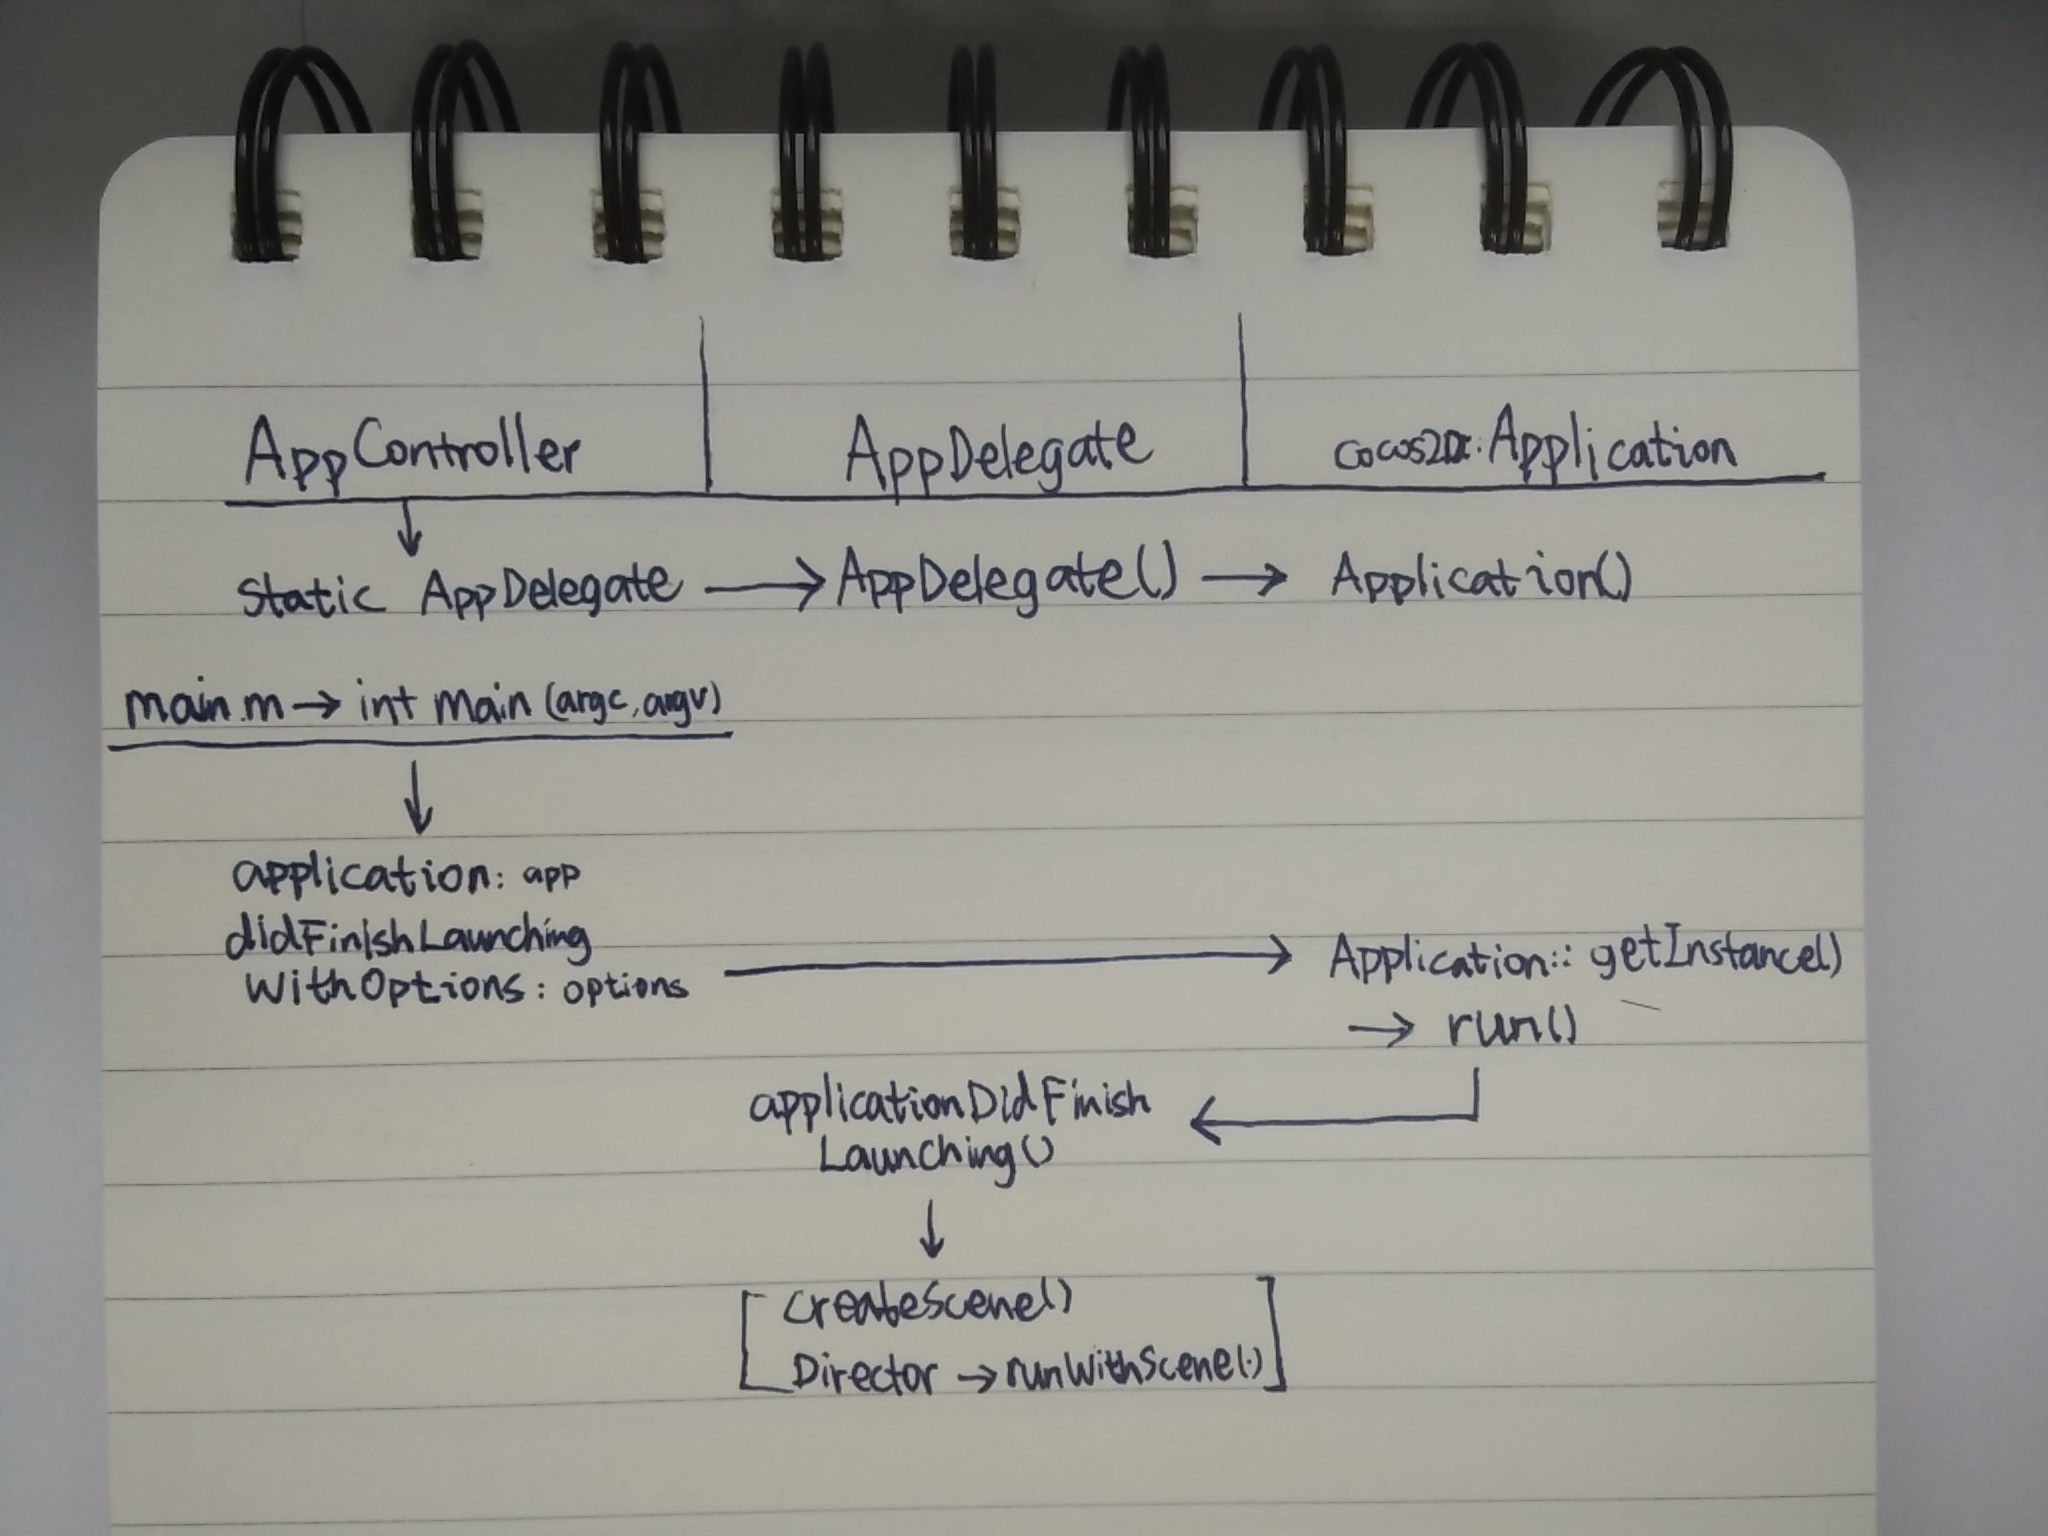 AppController | AppDelegate | cocos2dx: Application
↓
static AppDelegate → AppDelegate() → Application()
main.m → int main (argc, argv)
↓
application: app
didFinishLaunching
WithOptions: options → Application:: getInstance()
→ run()
applicationDidFinish ←
Launching()
↓
[ createScene() ]
Director → runWithScene(·)